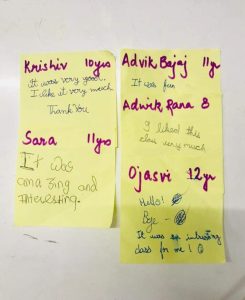 Krishiv 10yrs
It was very good.
I like it very much
Thank You
Sara 11yrs
It was
amazing and
Interesting.
Advik Bajaj 11yr
It was fun
Advik Rana 8
I liked this
class very much
Ojasvi 12yr
Hello!
Bye -
It was
class for me!